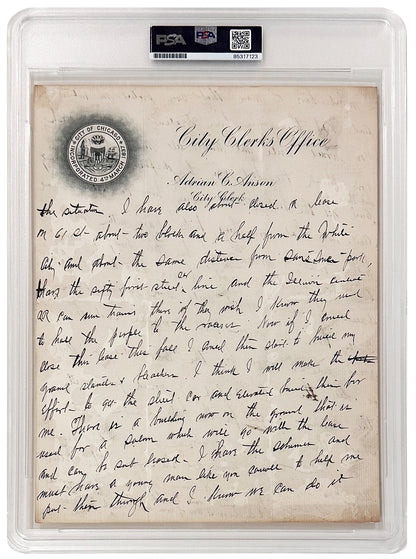 PSA
PSA
85317123
CITY OF CHICAGO
INCORPORATED 4TH MARCH 1837
City Clerk's Office
Adrian C. Anson
City Clerk
the situation. I have also about closed a lease
on 61 St about two blocks and a half from the White
City and about the same distance from park,
the sixty first street car line and the
RR can run trains there if they wish I know they used
to haul the people to the races. Now if I could
close this lease this fall I could then start to build my
grand stands & bleachers I think I will make the
effort to get the street car and Elevated build them for
me. There is a building now on the ground that is
used for a saloon which will go with the lease
and can be sub leased. I have the schemes and
must have a young man like you to help me
put them through and I know we can do it